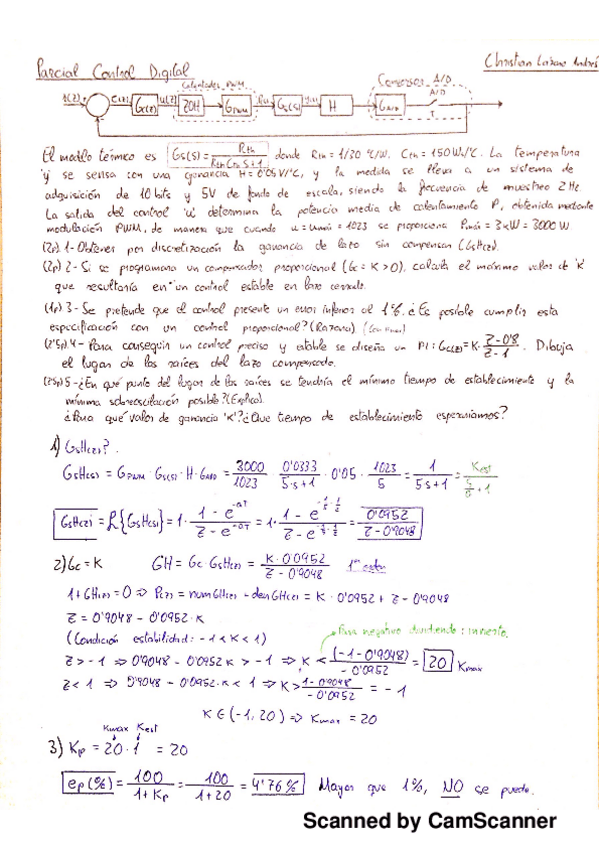 Parcial Control Digital
Christian Lozano Andrés
Calentador PWM
Conversor A/D
r(z) e(z) Gc(z) u(z) ZOH GPWM Gs(s) H GA/D A/D
T
El modelo térmico es Gs(s) = Rth / (Rth Cth s + 1) donde Rth = 1/30 ºC/W, Cth = 150 Ws/ºC. La temperatura
'y' se sensa con una ganancia H = 0'05 V/ºC, y la medida se lleva a un sistema de
adquisición de 10 bits y 5V de fondo de escala, siendo la frecuencia de muestreo 2 Hz.
La salida del control 'u' determina la potencia media de calentamiento P, obtenida mediante
modulación PWM, de manera que cuando u = umáx = 1023 se proporciona Pmáx = 3kW = 3000 W
(2p) 1- Obtener por discretización la ganancia de lazo sin compensar (GsH(z)).
(2p) 2- Si se programara un compensador proporcional (Gc = K > 0), calcula el máximo valor de 'K'
que resultaría en un control estable en lazo cerrado.
(1p) 3- Se pretende que el control presente un error inferior al 1%. ¿Es posible cumplir esta
especificación con un control proporcional? (Razona)
(2'5p) 4- Para conseguir un control preciso y estable se diseña un PI: Gc(z) = K · (z - 0'8) / (z - 1). Dibuja
el lugar de las raíces del lazo compensado.
(2'5p) 5- ¿En qué punto del lugar de las raíces se tendría el mínimo tiempo de establecimiento y la
mínima sobreoscilación posible? (Explica).
¿Para qué valor de ganancia 'K'? ¿Que tiempo de establecimiento esperaríamos?
1) GsH(z)?
GsH(s) = GPWM · Gs(s) · H · GA/D = 3000/1023 · 0'0333/(5·s+1) · 0'05 · 1023/5 = 1/(5s+1) = Kest/(s/a + 1)
GsH(z) = Z{GsH(s)} = 1 · (1 - e^-aT)/(z - e^-aT) = 1 · (1 - e^-1/5·1/2)/(z - e^-1/5·1/2) = 0'0952/(z - 0'9048)
2) Gc = K GH = Gc · GsH(z) = K · 0'0952/(z - 0'9048) 1er orden
1 + GH(z) = 0 => P(z) = numGH(z) + denGH(z) = K · 0'0952 + z - 0'9048
z = 0'9048 - 0'0952 · K
(Condición estabilidad: -1 < K < 1)
Para negativo dividiendo: invierte.
z > -1 => 0'9048 - 0'0952 K > -1 => K < (-1 - 0'9048)/(-0'0952) = 20 Kmax
z < 1 => 0'9048 - 0'0952·K < 1 => K > (1 - 0'9048)/(-0'0952) = -1
K ∈ (-1, 20) => Kmax = 20
Kmax Kest
3) Kp = 20 · 1 = 20
ep(%) = 100/(1 + Kp) = 100/(1 + 20) = 4'76% Mayor que 1%, NO se puede.
Scanned by CamScanner